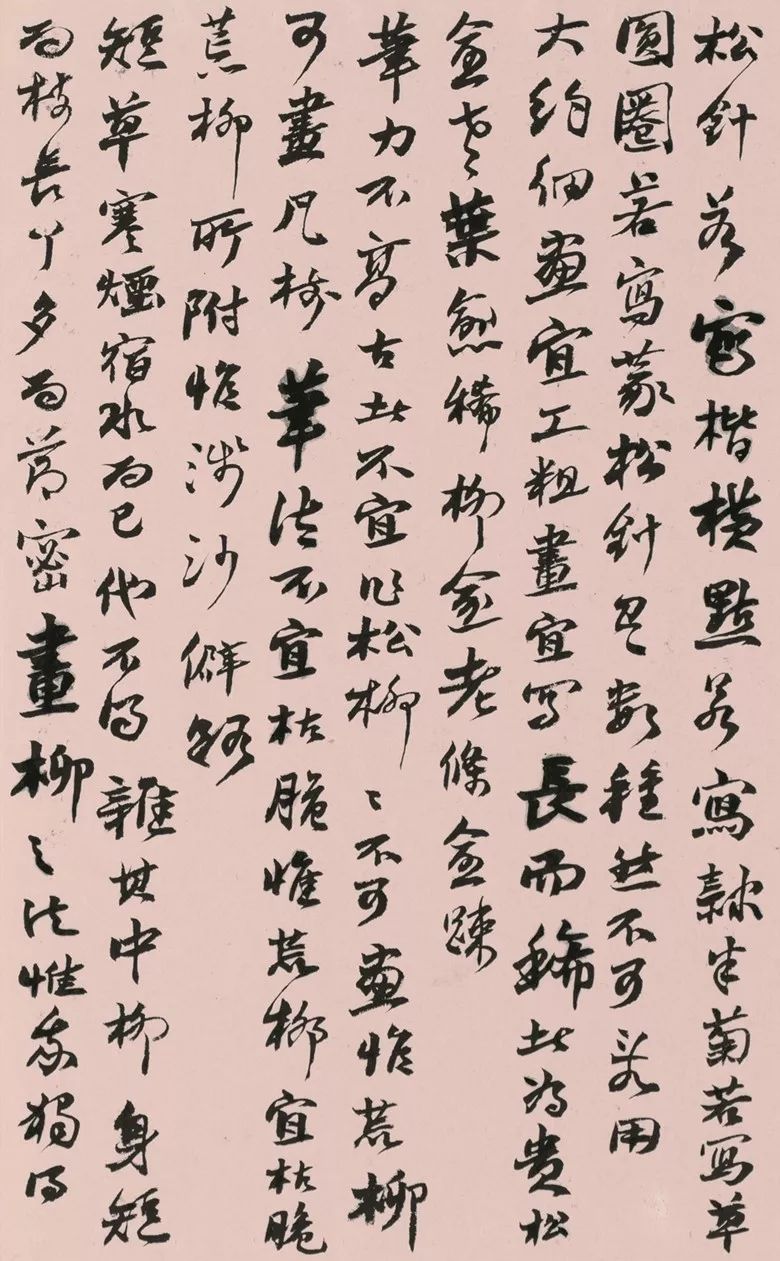 松針若寫楷橫點若寫隸半菊若寫草
圓圈若寫篆松針數種然不可用
大約細畫宜工粗畫宜寫長而稀此為貴松
愈老葉愈稀柳愈老條愈疎
筆力不高古者不宜作松柳〻不可畫惟荒柳
可畫凡樹筆法不宜枯脆惟荒柳宜枯脆
荒柳所附惟淺沙僻路
短草寒煙宿水而已他不得雜其中柳身短
而枝長丫多而節密畫柳之法惟我獨得